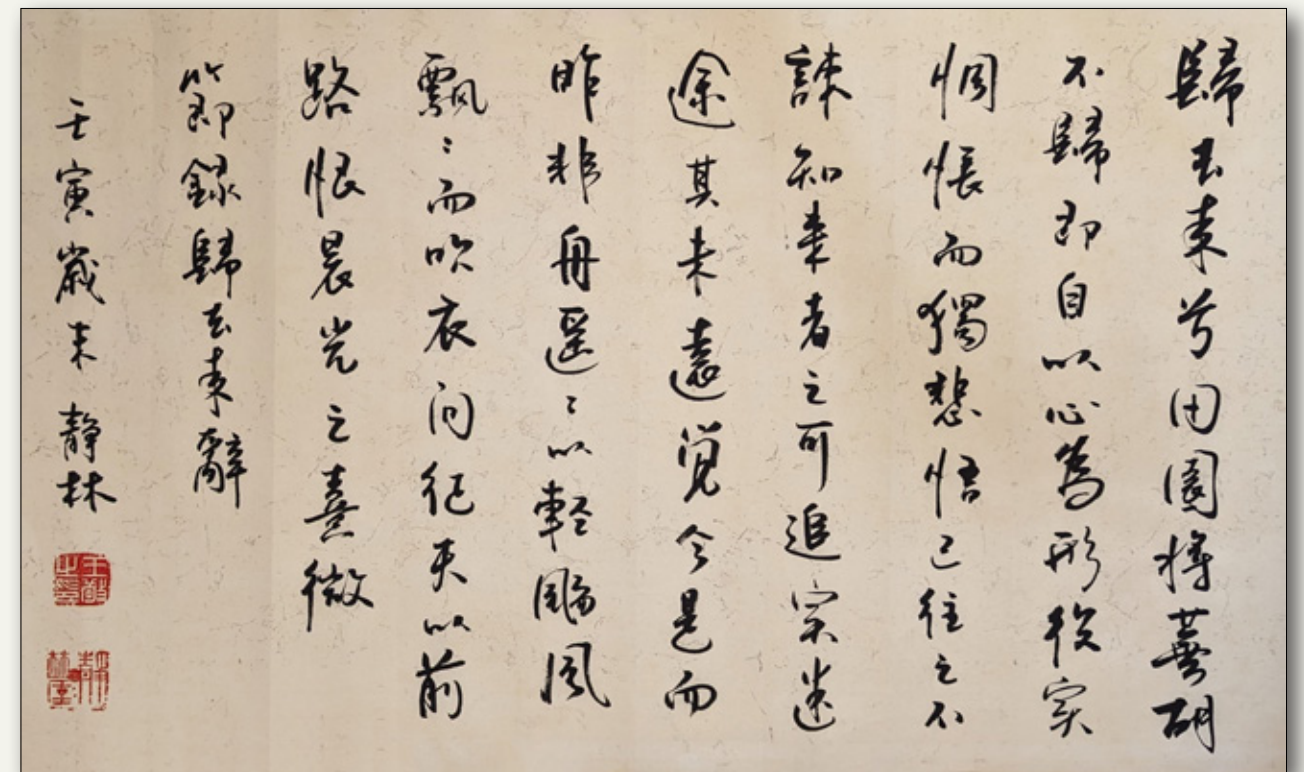 歸去来兮田園将蕪胡
不歸即自以心為形役奚
惆悵而獨悲悟已往之不
諫知来者之可追实迷
途其未遠覚今是而
昨非舟遥〻以軽颺風
飄〻而吹衣问征夫以前
路恨晨光之熹微
節録歸去来辭
壬寅歳末 静林